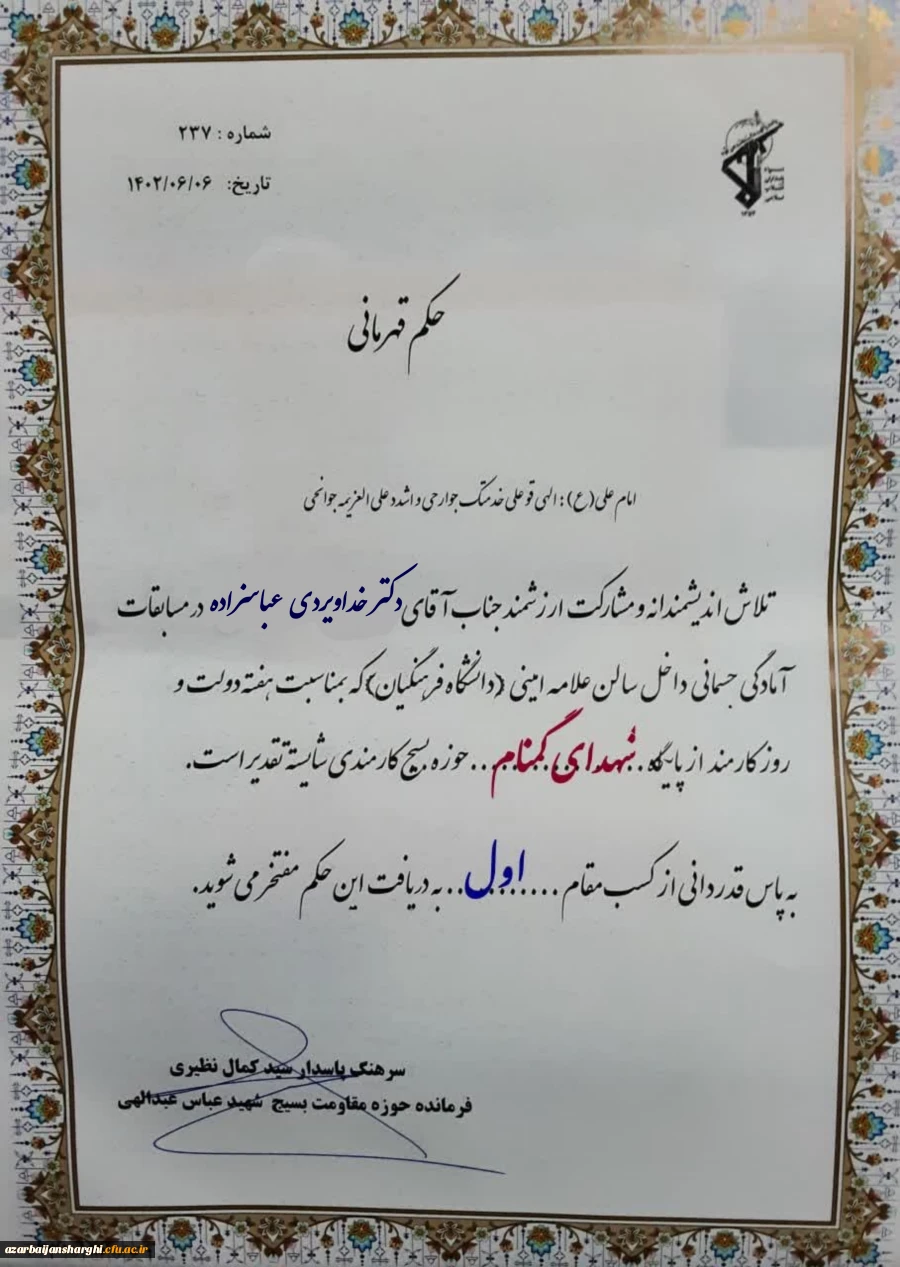 شماره : ۲۳۷
تاریخ: ۱۴۰۲/۰۶/۰۶
حکم قهرمانی
امام علی (ع) : الهی قو علی خدمتک جوارحی و اشدد علی العزیمه جوانحی
تلاش اندیشمندانه و مشارکت ارزشمند جناب آقای دکتر خداویردی عباسزاده در مسابقات
آمادگی جسمانی داخل سالن علامه امینی (دانشگاه فرهنگیان) که بمناسبت هفته دولت و
روز کارمند از پایگاه ..شهدای گمنام... حوزه بسیج کارمندی شایسته تقدیر است.
به پاس قدردانی از کسب مقام .....اول..... به دریافت این حکم مفتخر می شوید.
سرهنگ پاسدار سید کمال نظیری
فرمانده حوزه مقاومت بسیج شهید عباس عبدالهی
azarbaijansharghi.cfu.ac.ir